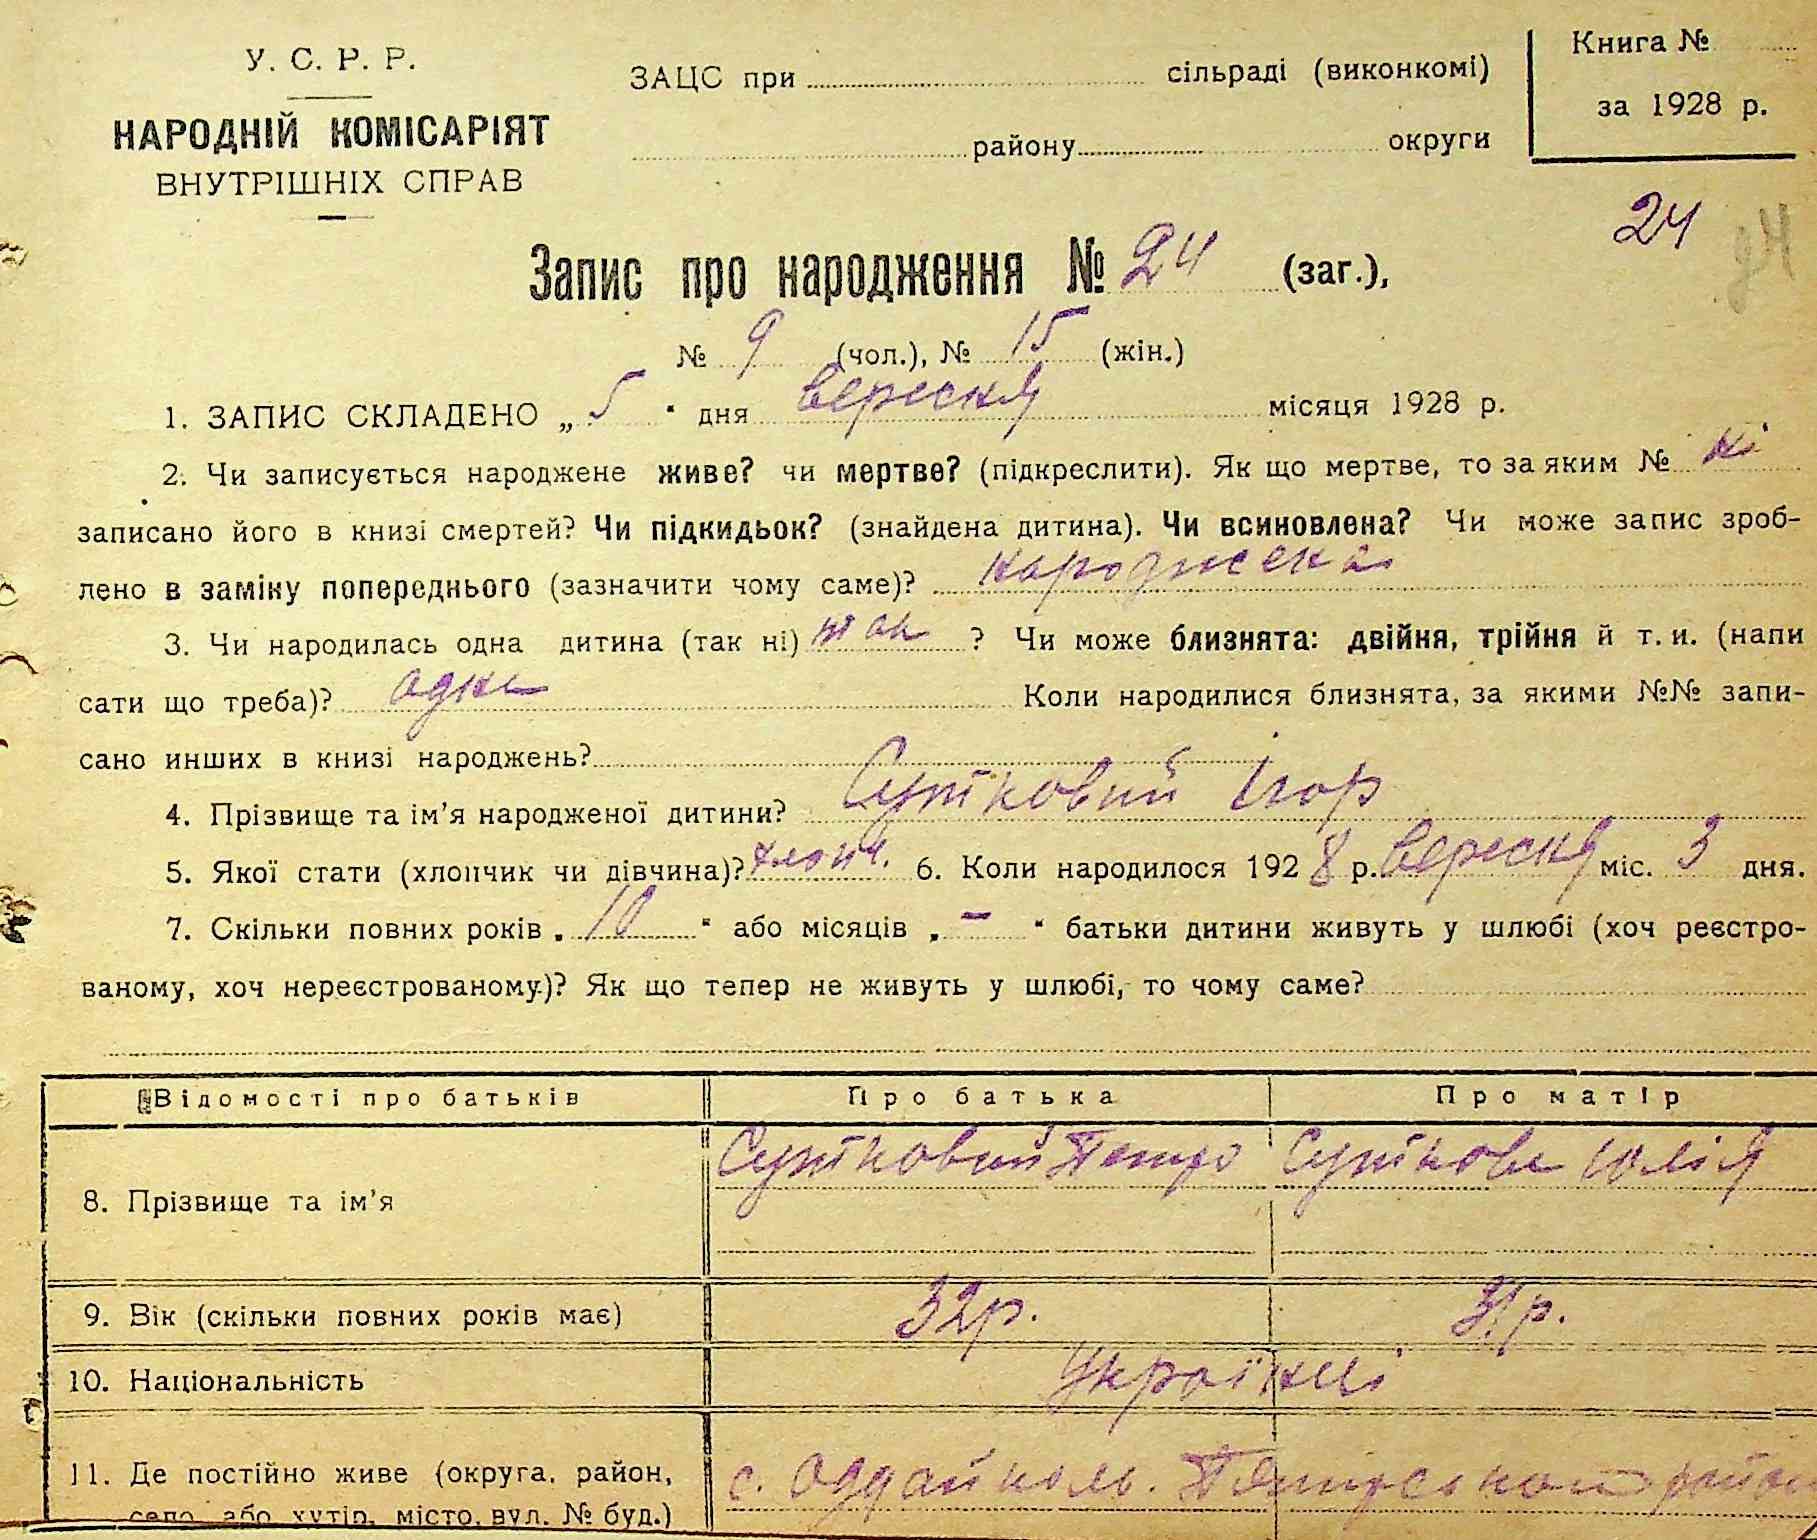 У. С. Р. Р.
НАРОДНІЙ КОМІСАРІЯТ
ВНУТРІШНІХ СПРАВ
ЗАЦС при сільраді (виконкомі)
району округи
Книга №
за 1928 р.
24 24
Запис про народження № 24 (заг.),
№ 9 (чол.), № 15 (жін.)
1. ЗАПИС СКЛАДЕНО „ 5 " дня вересня місяця 1928 р.
2. Чи записується народжене живе? чи мертве? (підкреслити). Як що мертве, то за яким № ні
записано його в книзі смертей? Чи підкидьок? (знайдена дитина). Чи всиновлена? Чи може запис зроб-
лено в заміку попереднього (зазначити чому саме)? народжена
3. Чи народилась одна дитина (так ні) так ? Чи може близнята: двійня, трійня й т. и. (напи
сати що треба)? одна Коли народилися близнята, за якими №№ запи-
сано инших в книзі народжень?
4. Прізвище та ім'я народженої дитини? Сутковий Ігор
5. Якої стати (хлопчик чи дівчина)? хлопч. 6. Коли народилося 1928 р. вересня міс. 3 дня.
7. Скільки повних років „ 10 " або місяців „ – " батьки дитини живуть у шлюбі (хоч реєстро-
ваному, хоч нереєстрованому)? Як що тепер не живуть у шлюбі, то чому саме?
Відомості про батьків Про батька Про матір
8. Прізвище та ім'я Сутковий Петро Суткова Юлія
9. Вік (скільки повних років має) 32 р. 31 р.
10. Національність Українці
11. Де постійно живе (округа, район, с. район
село або хутір, місто, вул. № буд.)